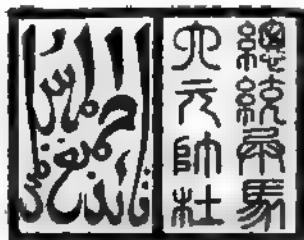 總統兵馬
大元帥杜
قائد جميع المسلمين